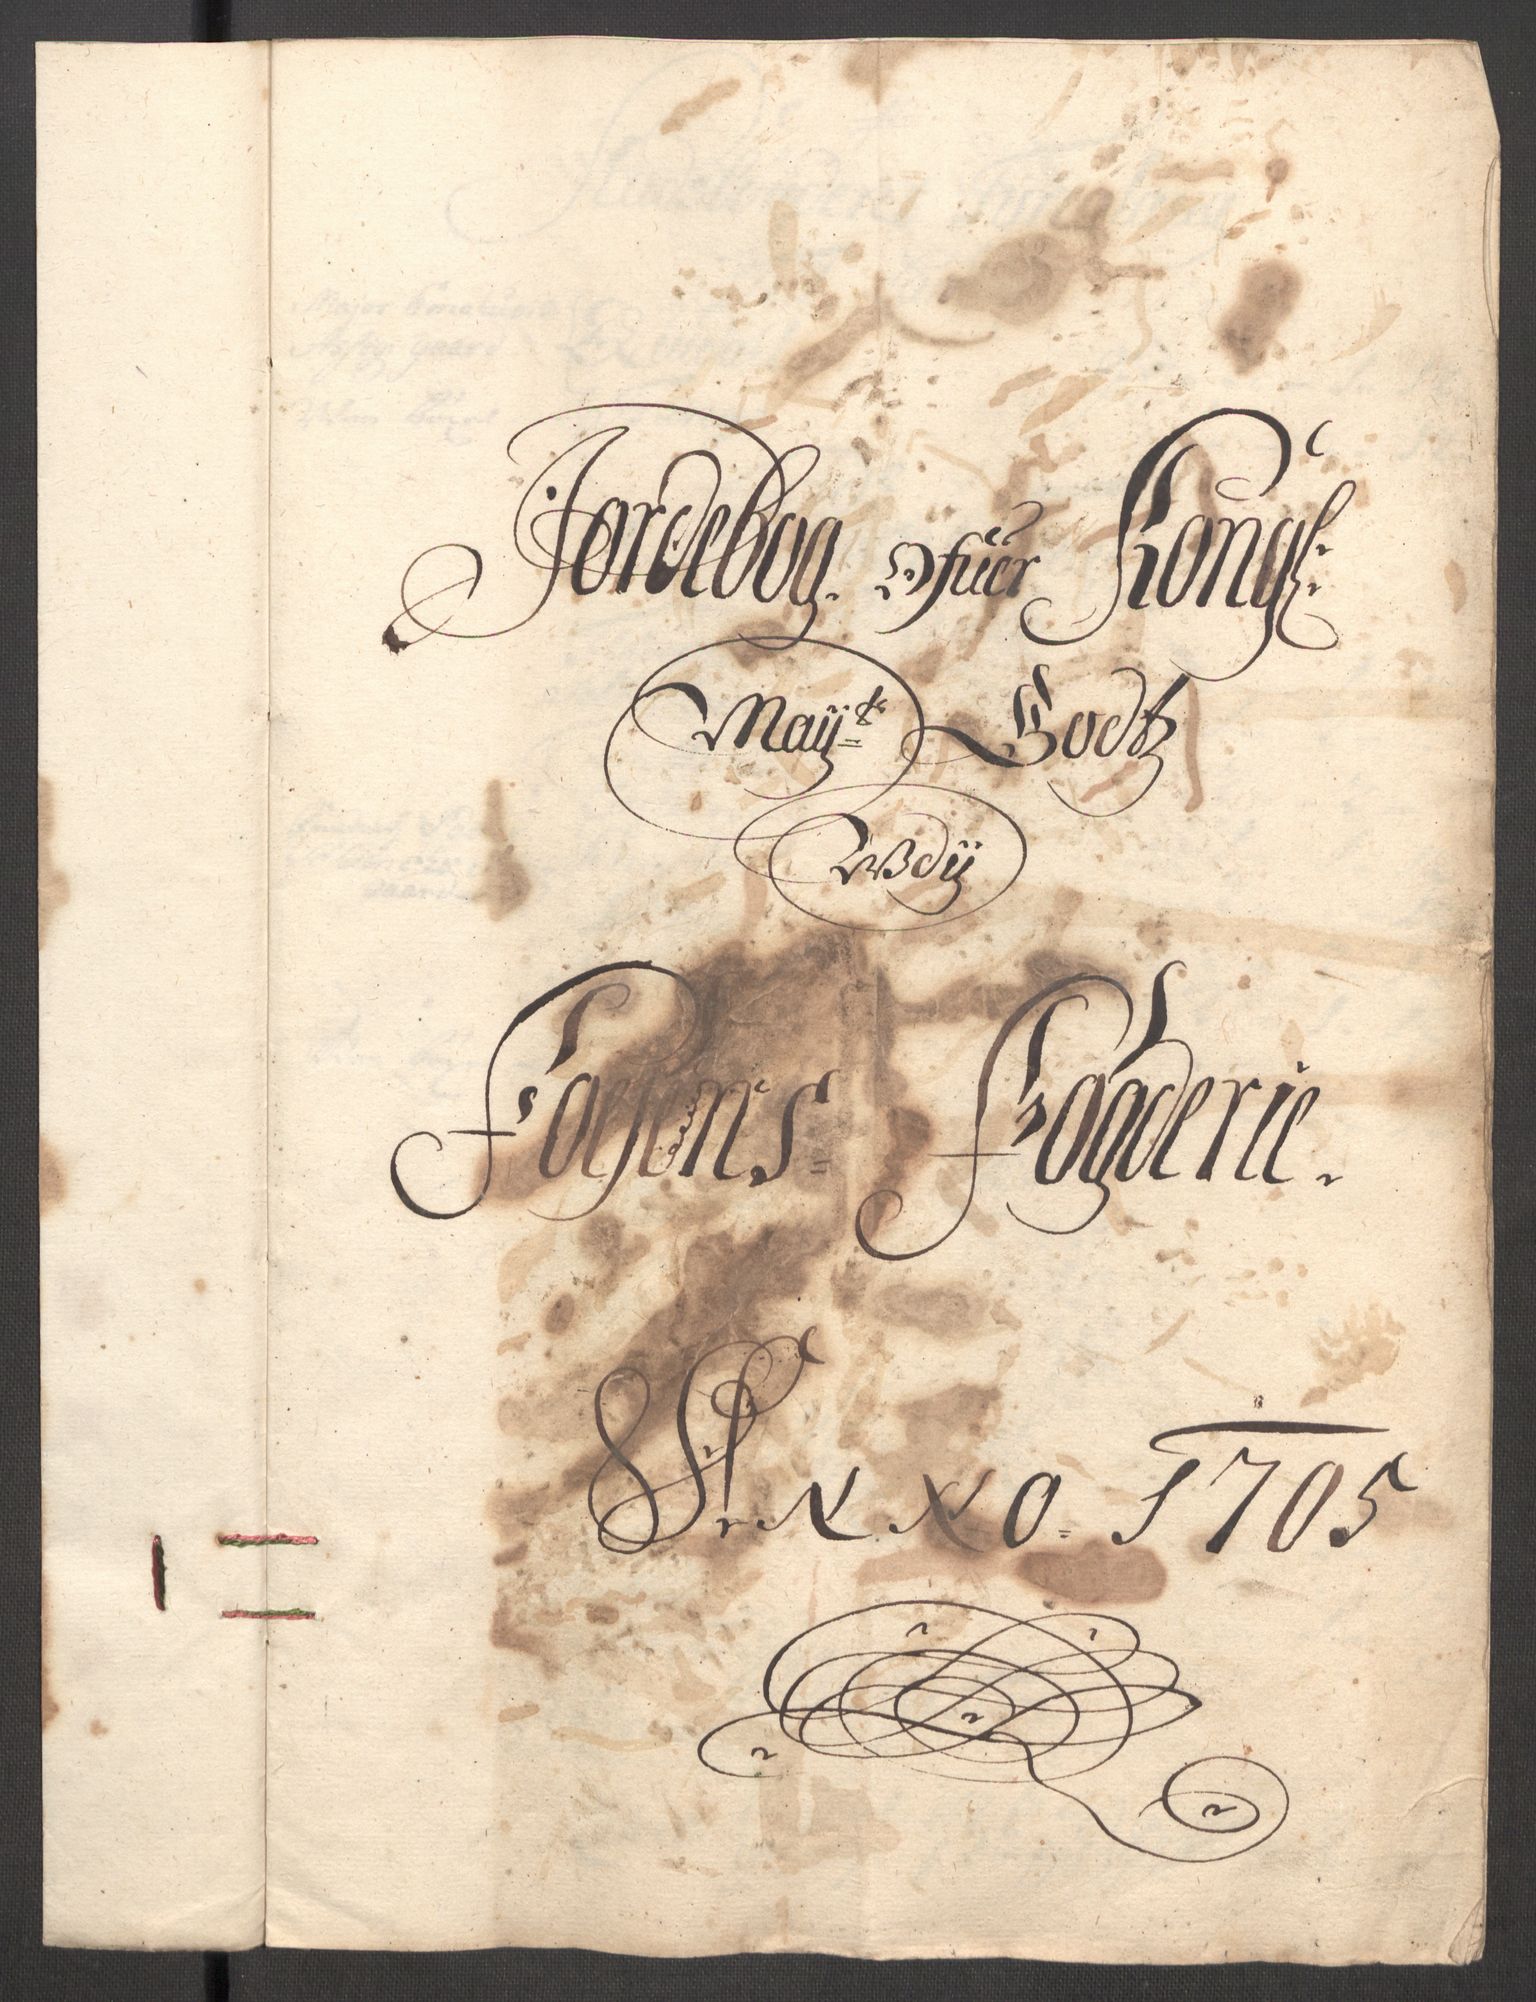 Jordebog ofuer Kongl.
Maÿts Godtz
Udÿ
Fosens Fogderie.
Anno 1705